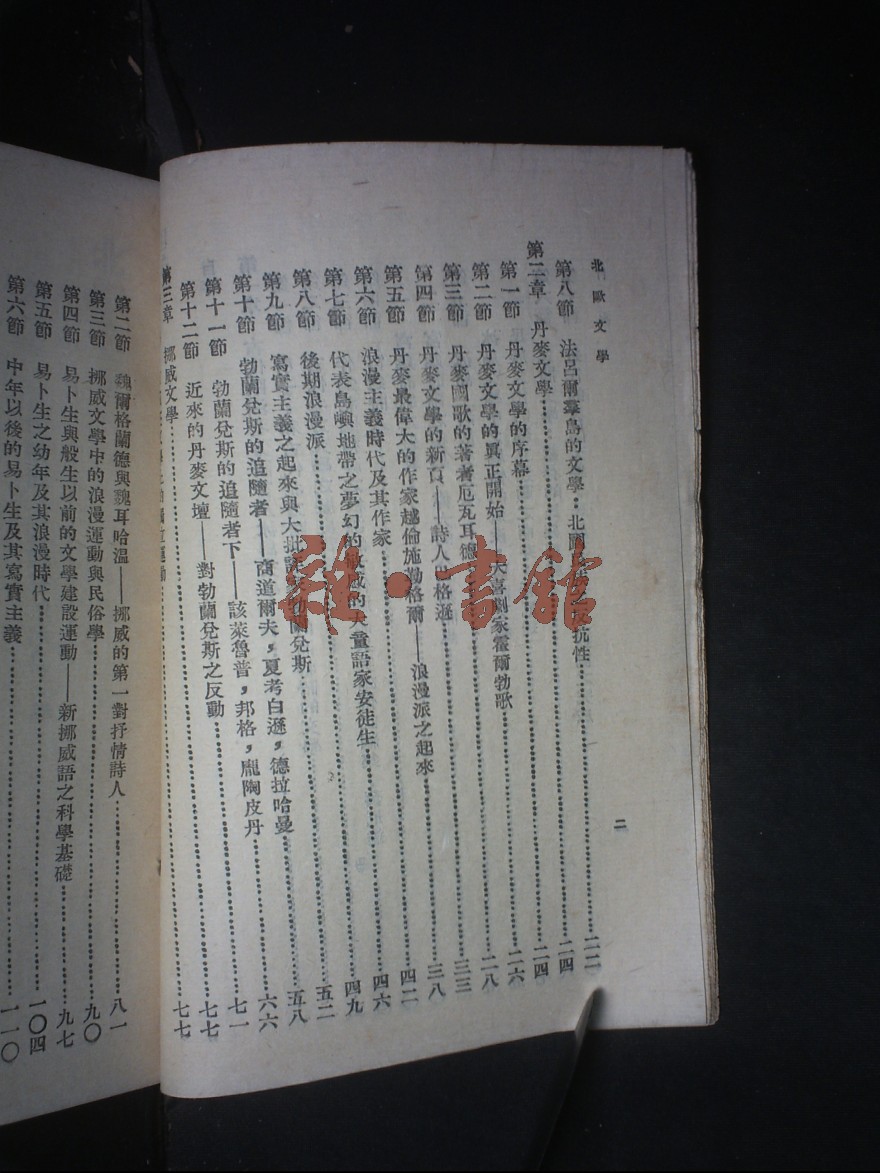 北歐文學
二
第八節 法呂爾羣島的文學·北國 抗性……二二
第二章 丹麥文學……二四
第一節 丹麥文學的序幕……二四
第二節 丹麥文學的眞正開始——大喜劇家霍爾勃歌……二六
第三節 丹麥國歌的著者厄瓦耳德……二八
第四節 丹麥文學的新頁——詩人 格遜……三三
第五節 丹麥最偉大的作家越倫施勒格爾——浪漫派之起來……三八
第六節 浪漫主義時代及其作家……四二
第七節 代表島嶼地帶之夢幻的敏感的大童話家安徒生……四六
第八節 後期浪漫派……四九
第九節 寫實主義之起來與大批評家勃蘭兌斯……五二
第十節 勃蘭兌斯的追隨者——商道爾夫，夏考白遜，德拉哈曼……五八
第十一節 勃蘭兌斯的追隨者下——該萊魯普，邦格，龐陶皮丹……六六
第十二節 近來的丹麥文壇——對勃蘭兌斯之反動……七一
第三章 挪威文學……七七
七七
第二節 魏爾格蘭德與魏耳哈溫——挪威的第一對抒情詩人……八一
第三節 挪威文學中的浪漫運動與民俗學……九〇
第四節 易卜生與般生以前的文學建設運動——新挪威語之科學基礎……九七
第五節 易卜生之幼年及其浪漫時代……一〇四
第六節 中年以後的易卜生及其寫實主義……一一〇
雜·書館